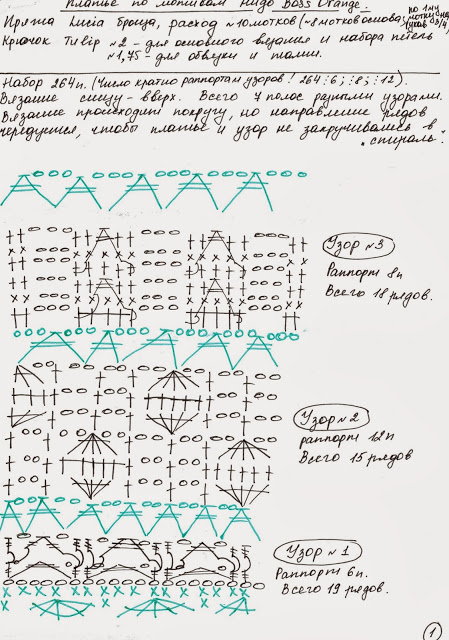 Платье по мотивам Hugo Boss Orange.
Пряжа Lucia Броща, расход ≈10 мотков (~8 мотков основа,
по 1му
мотку
рукав 3/4)
Крючок Tulip №2 - для основного вязания и набора петель
№1,75 - для обвязки и талии.
Набор 264 п. (Число кратно раппортам узоров! 264 : 6 ; : 8 ; : 12).
Вязание снизу - вверх. Всего 7 полос разными узорами.
Вязание происходит по кругу, но направление рядов
чередуется, чтобы платье и узор не закручивались в
"спираль".
Узор №3
Раппорт 8п
Всего 18 рядов.
Узор №2
раппорт 12п
Всего 15 рядов
Узор №1
Раппорт 6п.
Всего 19 рядов.
1